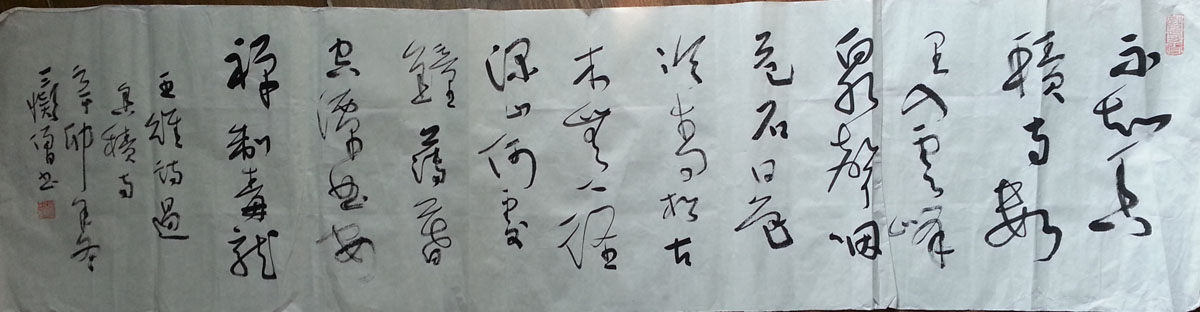 不知香
積寺數
里入雲峰
泉聲咽
危石日色
冷青松古
木無人徑
深山何處
鐘薄暮
空潭曲安
禪制毒龍
王維詩過
香積寺
辛卯年冬
三癡僧書